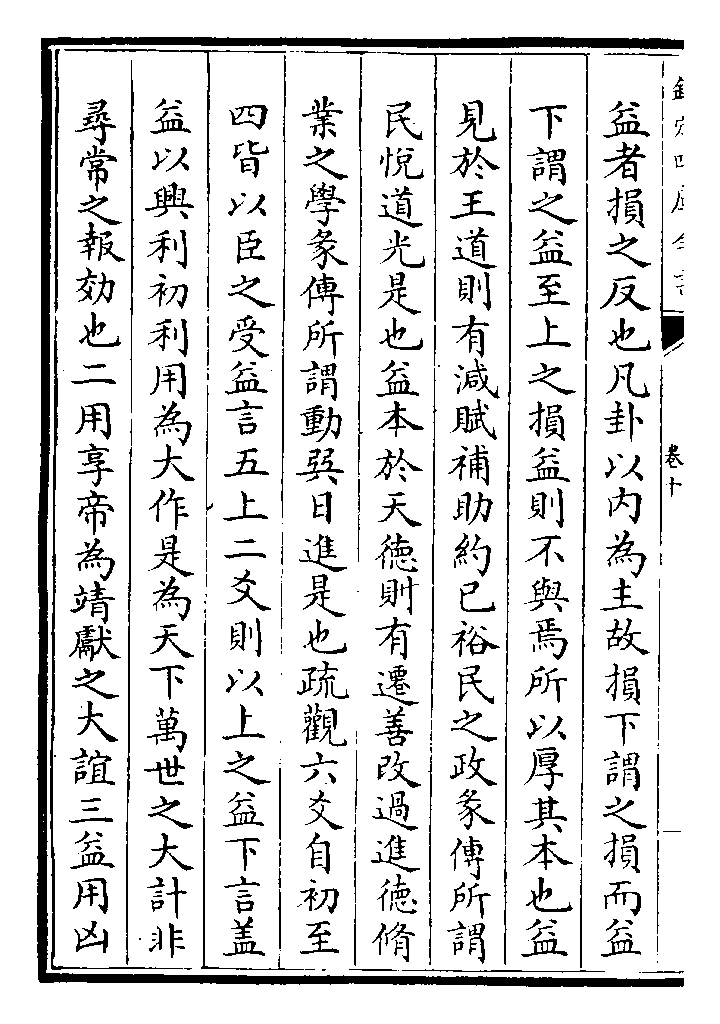 欽定四庫全書
卷十
益者損之反也凡卦以内為主故損下謂之損而益
下謂之益至上之損益則不與焉所以厚其本也益
見於王道則有減賦補助約已裕民之政彖傳所謂
民悅道光是也益本於天德則有遷善改過進德脩
業之學彖傳所謂動巽日進是也疏觀六爻自初至
四皆以臣之受益言五上二爻則以上之益下言盖
益以興利初利用為大作是為天下萬世之大計非
尋常之報効也二用享帝為靖獻之大誼三益用凶